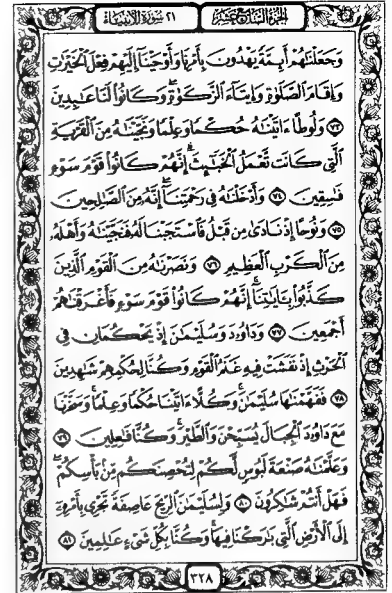 الجزء السابع عشر ٢١ سورة الأنبياء
وَجَعَلْنَاهُمْ أَئِمَّةً يَهْدُونَ بِأَمْرِنَا وَأَوْحَيْنَا إِلَيْهِمْ فِعْلَ الْخَيْرَاتِ
وَإِقَامَ الصَّلَوٰةِ وَإِيتَاءَ الزَّكَوٰةِ وَكَانُوا لَنَا عَابِدِينَ
٧٣ وَلُوطًا ءَاتَيْنَاهُ حُكْمًا وَعِلْمًا وَنَجَّيْنَاهُ مِنَ الْقَرْيَةِ
الَّتِي كَانَت تَّعْمَلُ الْخَبَائِثَ إِنَّهُمْ كَانُوا قَوْمَ سَوْءٍ
فَاسِقِينَ ٧٤ وَأَدْخَلْنَاهُ فِي رَحْمَتِنَا إِنَّهُ مِنَ الصَّالِحِينَ
٧٥ وَنُوحًا إِذْ نَادَىٰ مِن قَبْلُ فَاسْتَجَبْنَا لَهُ فَنَجَّيْنَاهُ وَأَهْلَهُ
مِنَ الْكَرْبِ الْعَظِيمِ ٧٦ وَنَصَرْنَاهُ مِنَ الْقَوْمِ الَّذِينَ
كَذَّبُوا بِـَٔايَاتِنَا إِنَّهُمْ كَانُوا قَوْمَ سَوْءٍ فَأَغْرَقْنَاهُمْ
أَجْمَعِينَ ٧٧ وَدَاوُدَ وَسُلَيْمَانَ إِذْ يَحْكُمَانِ فِي
الْحَرْثِ إِذْ نَفَشَتْ فِيهِ غَنَمُ الْقَوْمِ وَكُنَّا لِحُكْمِهِمْ شَاهِدِينَ
٧٨ فَفَهَّمْنَاهَا سُلَيْمَانَ وَكُلًّا ءَاتَيْنَا حُكْمًا وَعِلْمًا وَسَخَّرْنَا
مَعَ دَاوُدَ الْجِبَالَ يُسَبِّحْنَ وَالطَّيْرَ وَكُنَّا فَاعِلِينَ ٧٩
وَعَلَّمْنَاهُ صَنْعَةَ لَبُوسٍ لَّكُمْ لِتُحْصِنَكُم مِّن بَأْسِكُمْ
فَهَلْ أَنتُمْ شَاكِرُونَ ٨٠ وَلِسُلَيْمَانَ الرِّيحَ عَاصِفَةً تَجْرِي بِأَمْرِهِ
إِلَى الْأَرْضِ الَّتِي بَارَكْنَا فِيهَا وَكُنَّا بِكُلِّ شَيْءٍ عَالِمِينَ ٨١
٣٢٨